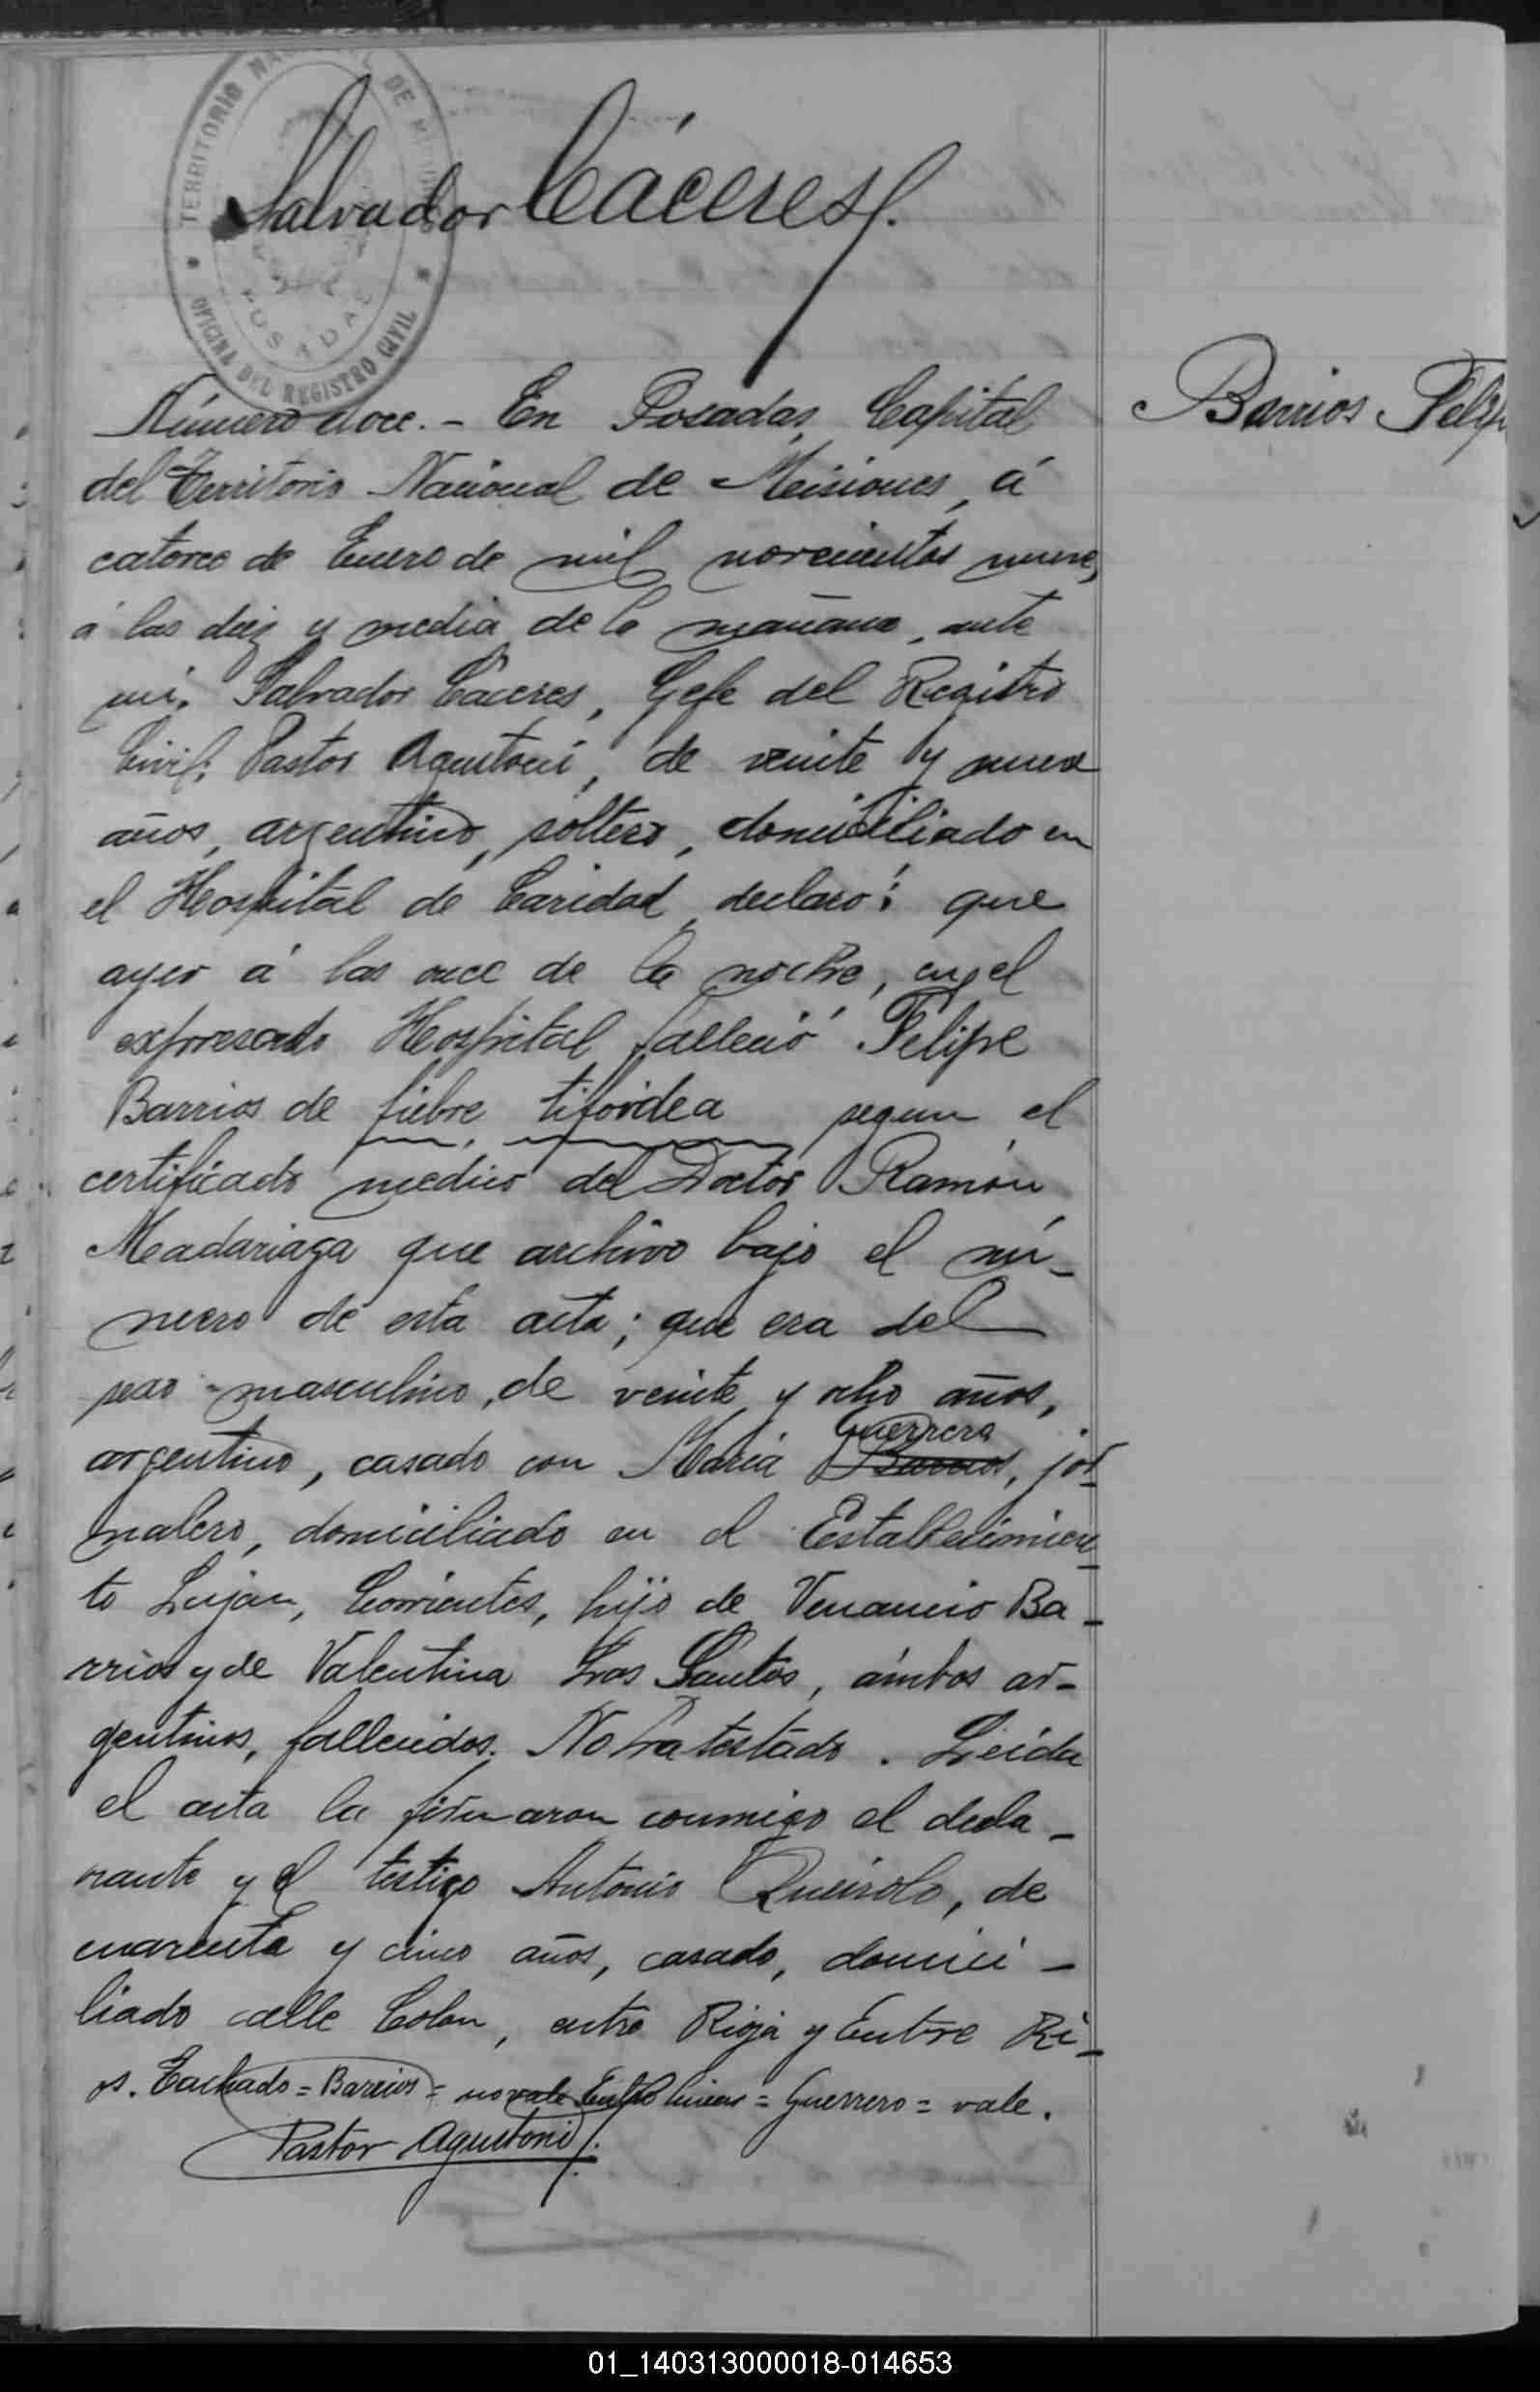 TERRITORIO NACIONAL DE MISIONES
OFICINA DEL REGISTRO CIVIL
POSADAS
Salvador Cáceres.
Número doce. - En Posadas, Capital
del Territorio Nacional de Misiones, á
catorce de Enero de mil novecientos nueve,
á las diez y media de la mañana, ante
mi, Salvador Cáceres, Gefe del Registro
Civil; Pastor Agustoni, de veinte y nueve
años, argentino, soltero, domiciliado en
el Hospital de Caridad, declaró: que
ayer á las once de la noche, en el
expresado Hospital falleció Felipe
Barrios de fiebre tifoidea segun el
certificado medico del Doctor Ramón
Madariaga que archivo bajo el nú-
mero de esta acta; que era del
sexo masculino, de veinte y ocho años,
Guerrero
argentino, casado con Maria Barrios, jor-
nalero, domiciliado en el Establecimien-
to Lujan, Corrientes, hijo de Venancio Ba-
rrios y de Valentina Dos Santos, ámbos ar-
gentinos, fallecidos. No ha testado. Leida
el acta la firmaron conmigo el decla-
rante y el testigo Antonio Queirolo, de
cuarenta y cinco años, casado, domici-
liado calle Colon, entre Rioja y Entre Ri-
os. Tachado = Barrios = no vale Entre lineas = Guerrero = vale.
Pastor Agustoni
Barrios Felip
01_140313000018-014653